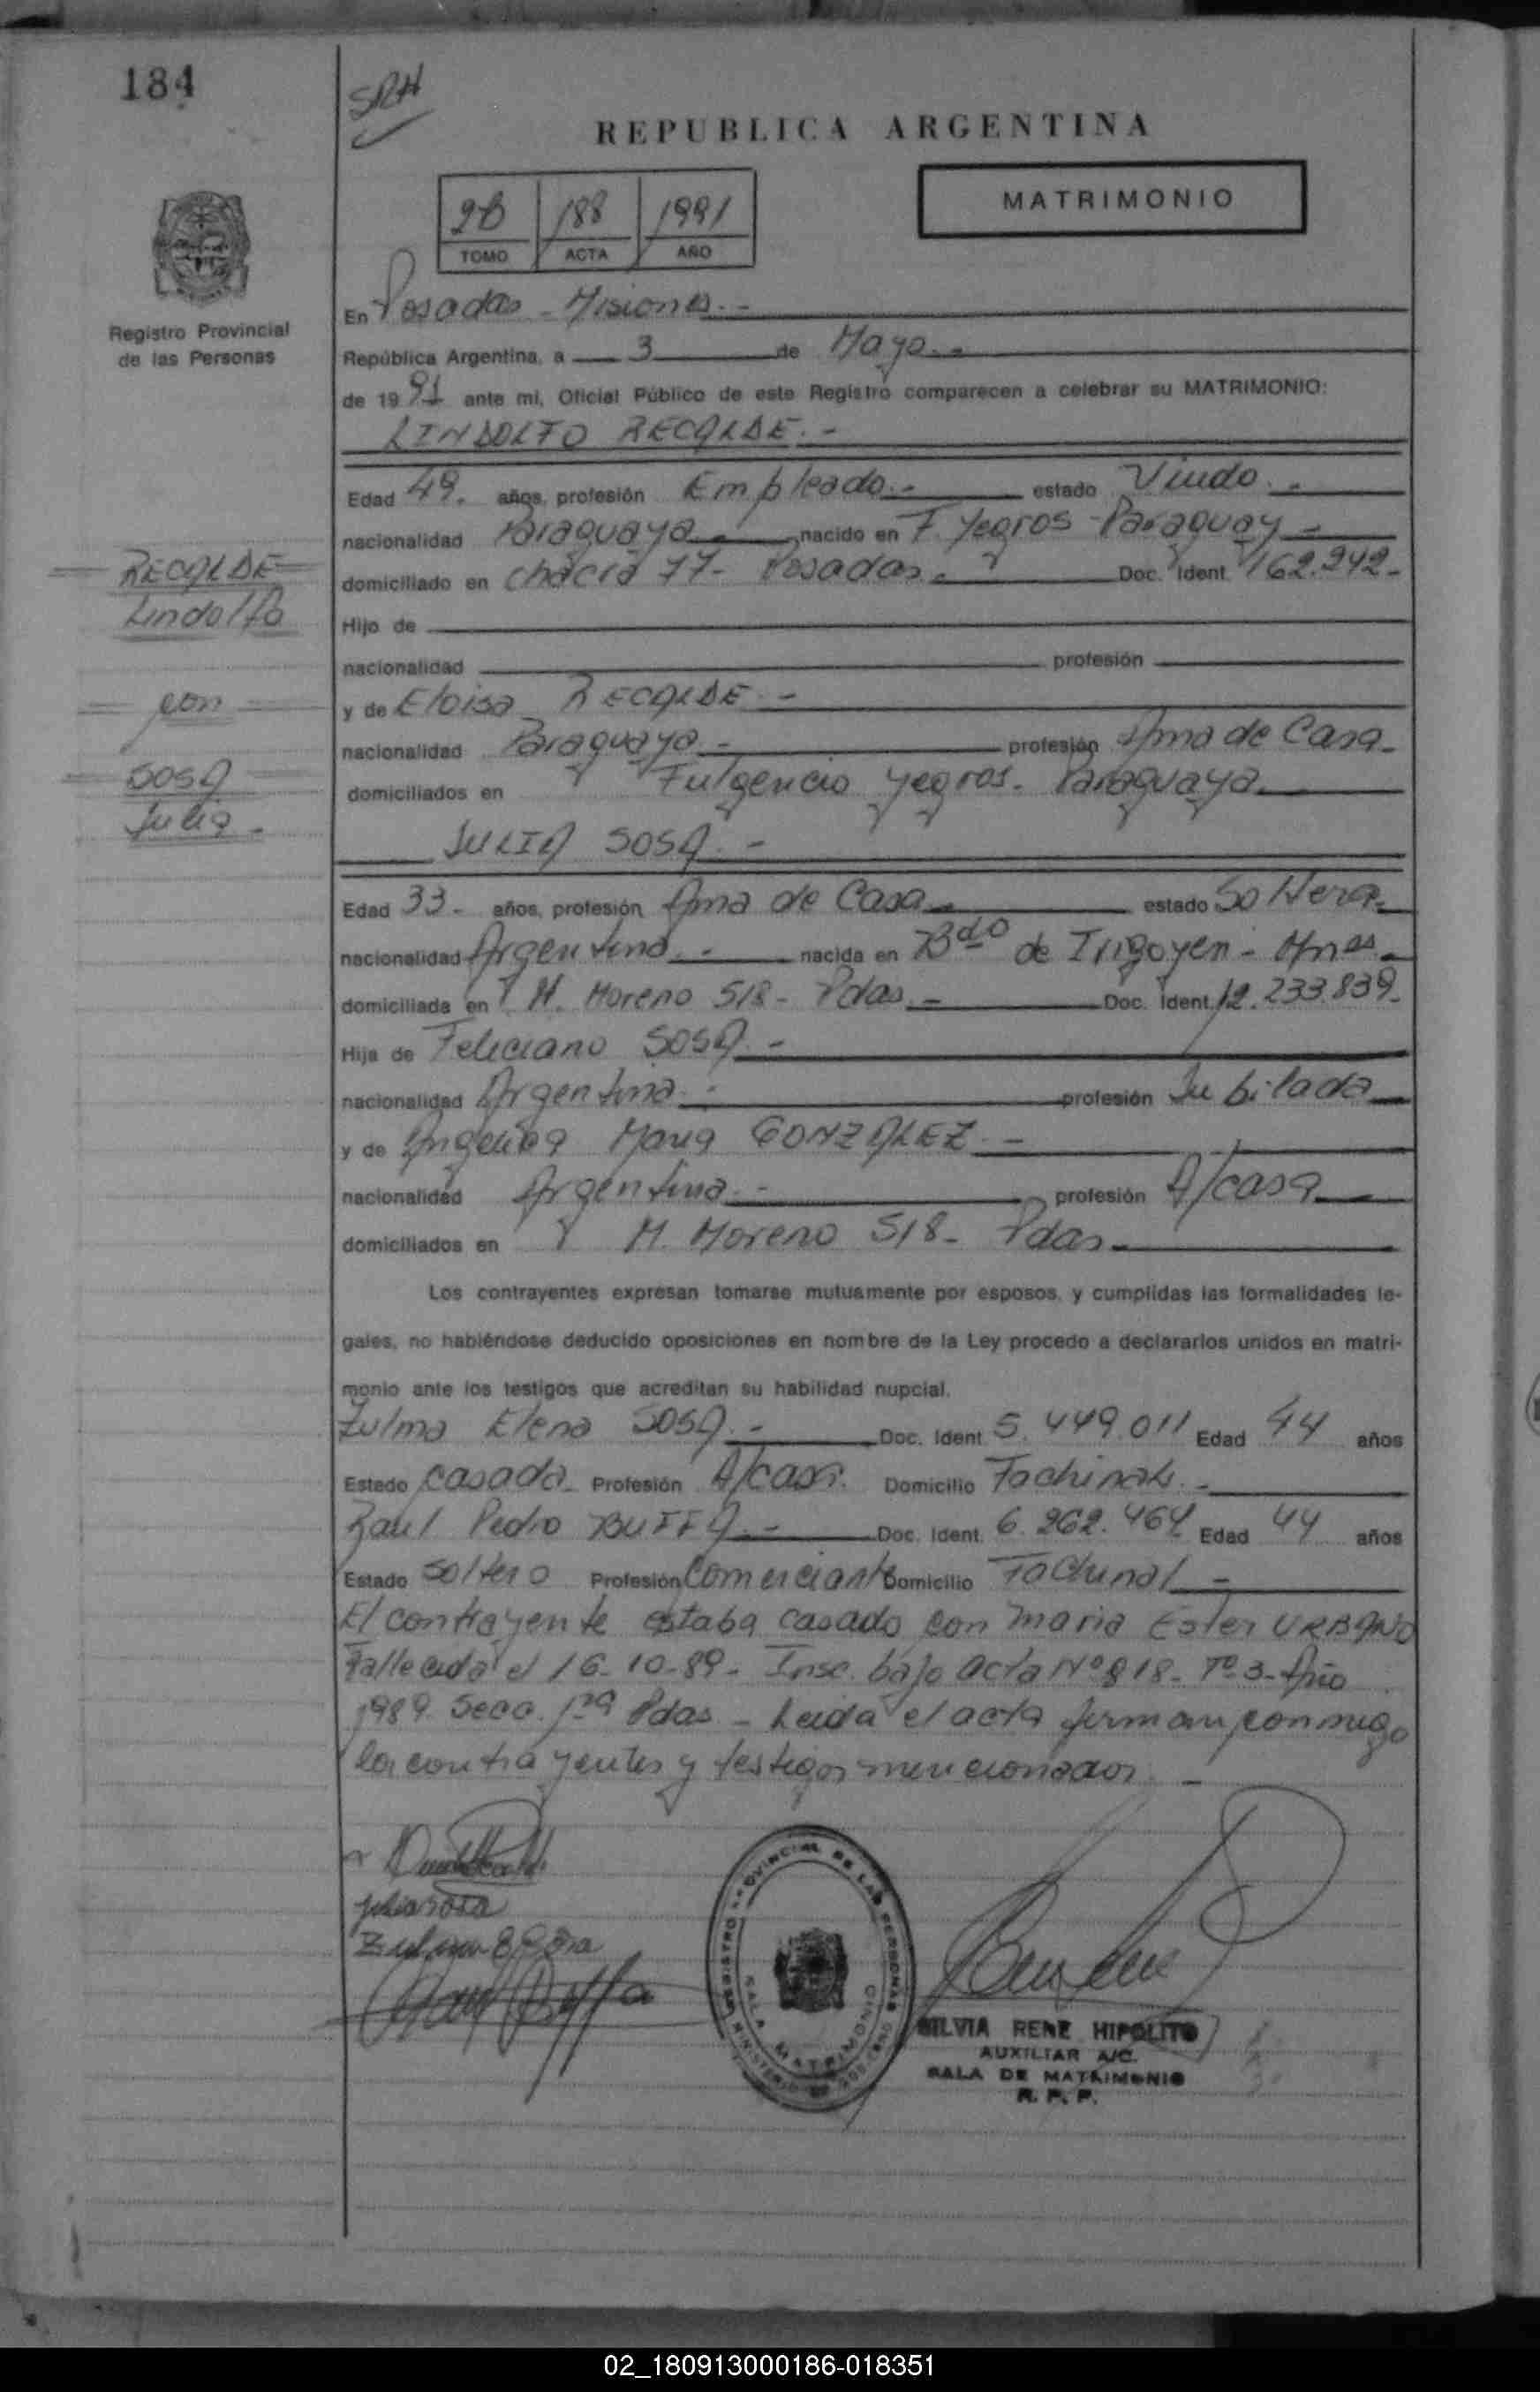 184
SRH
REPUBLICA ARGENTINA
MATRIMONIO
2B 188 1991
TOMO ACTA AÑO
Registro Provincial
de las Personas
En Posadas - Misiones.-
República Argentina, a 3 de Mayo.-
de 1991 ante mi, Oficial Público de este Registro comparecen a celebrar su MATRIMONIO:
LINDOLFO RECALDE.-
Edad 49. años, profesión Empleado.- estado Viudo.-
nacionalidad Paraguaya.- nacido en F. Yegros - Paraguay -
domiciliado en chacra 77- Posadas.- Doc. Ident. 162.242-
Hijo de
nacionalidad profesión
y de Eloisa RECALDE.-
nacionalidad Paraguaya.- profesión Ama de Casa-
domiciliados en Fulgencio Yegros. Paraguaya.
JULIA SOSA.-
Edad 33- años, profesión Ama de Casa- estado Soltera-
nacionalidad Argentina.- nacida en Bdo de Irigoyen - Mnes.-
domiciliada en M. Moreno 518- Pdas.- Doc. Ident. 12.233.839-
Hija de Feliciano SOSA.-
nacionalidad Argentina.- profesión Jubilada
y de Angelica Maria GONZALEZ.-
nacionalidad Argentina.- profesión A/casa
domiciliados en M. Moreno 518- Pdas-
Los contrayentes expresan tomarse mutuamente por esposos, y cumplidas las formalidades le-
gales, no habiéndose deducido oposiciones en nombre de la Ley procedo a declararlos unidos en matri-
monio ante los testigos que acreditan su habilidad nupcial.
Zulma Elena SOSA.- Doc. Ident. 5.449.011 Edad 44 años
Estado casada- Profesión A/casa. Domicilio Fachinal.-
Raul Pedro BUFFA.- Doc. Ident. 6.262.464 Edad 44 años
Estado soltero Profesión Comerciante Domicilio Fachinal -
El contrayente estaba casado con Maria Ester URBANO
Fallecida el 16-10-89- Insc. bajo acta Nº 818- Tº 3- Año
1989 Secc. 1ra Pdas - Leida el acta firman conmigo
los contrayentes y testigos mencionados.-
RECALDE
Lindolfo
con
SOSA
Julia-
julia sosa
REGISTRO PROVINCIAL DE LAS PERSONAS
MINISTERIO DE GOBIERNO
SALA MATRIMONIO
SILVIA RENE HIPOLITO
AUXILIAR A/C.
SALA DE MATRIMONIO
R. P. P.
02_180913000186-018351